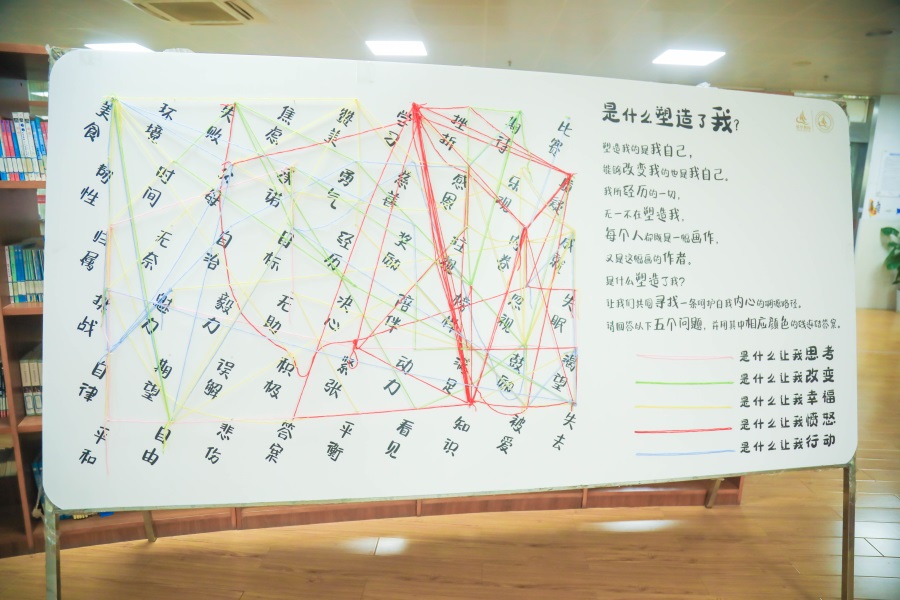 是什么塑造了我?
塑造我的是我自己,
能够改变我的也是我自己。
我所经历的一切,
无一不在塑造我。
每个人都既是一幅画作,
又是这幅画的作者。
是什么塑造了我?
让我们共同寻找一条呵护自我内心的明晰路径。
请回答以下五个问题,并用其中相应颜色的线连结答案。
是什么让我思考
是什么让我改变
是什么让我幸福
是什么让我愤怒
是什么让我行动
美食
环境
失败
焦虑
赞美
学习
挫折
期待
比赛
时间
勇气
慈善
感恩
乐观
归属
无奈
自治
目标
经历
奖励
内卷
挑战
魅力
毅力
无助
决心
陪伴
忽视
失眠
自律
期望
误解
积极
紧张
动力
满足
鼓励
渴望
平和
自由
悲伤
答案
平衡
看见
知识
被爱
失去